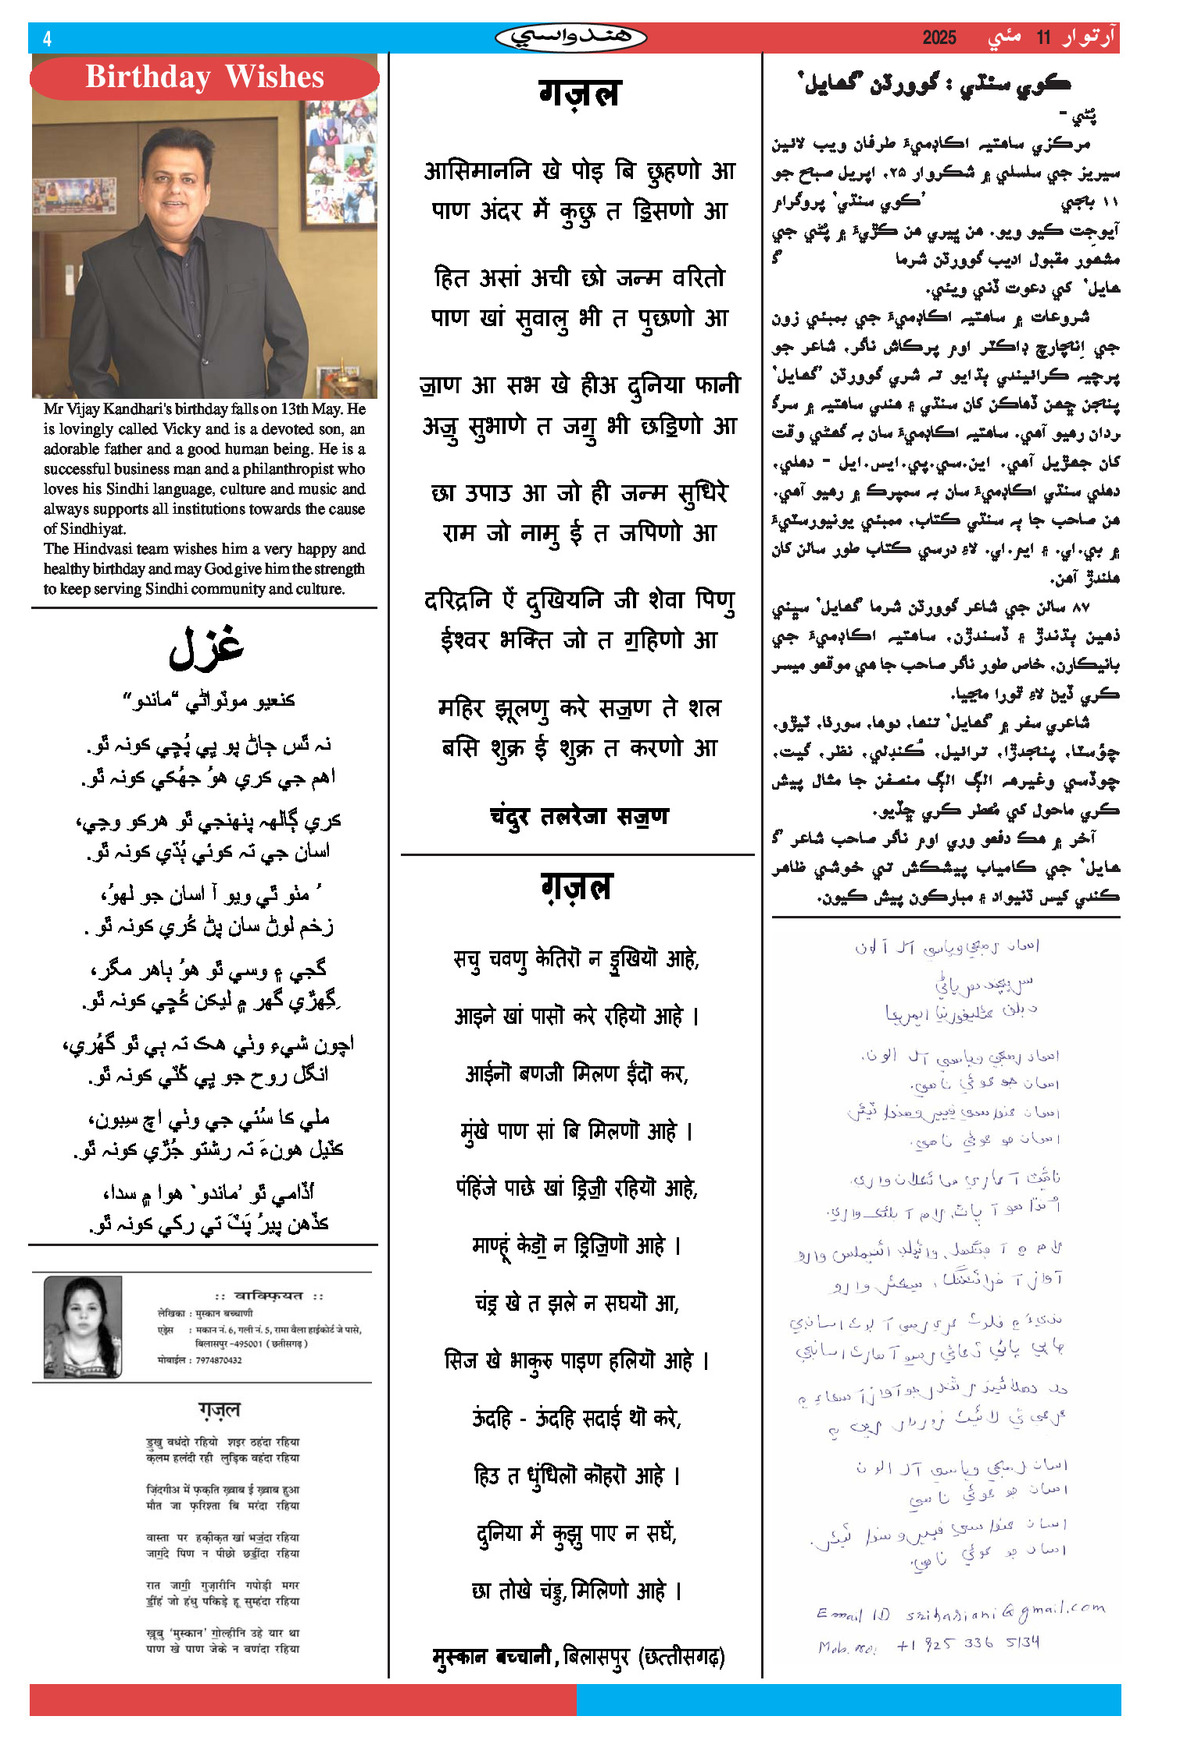 4
هندواسي
آرتوار 11 مئي 2025
Birthday Wishes
Mr Vijay Kandhari's birthday falls on 13th May. He
is lovingly called Vicky and is a devoted son, an
adorable father and a good human being. He is a
successful business man and a philanthropist who
loves his Sindhi language, culture and music and
always supports all institutions towards the cause
of Sindhiyat.
The Hindvasi team wishes him a very happy and
healthy birthday and may God give him the strength
to keep serving Sindhi community and culture.
غزل
کنعيو موٽواڻي “ماندو”
نہ ٿس ڄاڻ پو ڀي پُڇي کونہ ٿو.
اهم جي کري هوُ جھُڪي کونہ ٿو.
کري ڳالهہ پنهنجي ٿو هرکو وڃي،
اسان جي تہ کوئي ٻُڌي کونہ ٿو.
مٺو ٿي ويو آ اسان جو لهوُ،
زخم لوڻ سان ڀڻ کُري کونہ ٿو .
گجي ۽ وسي ٿو هوُ ٻاهر مگر،
گِهڙي گهر ۾ ليکن کُڇي کونہ ٿو.
اچون شيءِ وٺي هڪ تہ ٻي ٿو گهُري،
انگل روح جو ڀي کُٽي کونہ ٿو.
ملي کا سُئي جي وٺي اچ سِبون،
کٽيل هونءَ تہ رشتو جُڙي کونہ ٿو.
اُڏامي ٿو ’ماندو‘ هوا ۾ سدا،
کڏهن پيرُ پَٽَ تي رکي کونہ ٿو.
:: वाक्फ़ियत ::
लेखिका : मुस्कान बच्चाणी
एड्रेस : मकान नं. 6, गली नं. 5, रामा वैला हाईकोर्ट जे पासे,
बिलासपुर -495001 ( छतीसगढ़ )
मोबाईल : 7974870432
ग़ज़ल
डुखु वधंदो रहियो शइर ठहंदा रहिया
क़लम हलंदी रही लुड़िक वहंदा रहिया
ज़िंदगीअ में फ़क़ति ख़्वाब ई ख़्वाब हुआ
मौत जा फ़रिश्ता बि मरंदा रहिया
वास्ता पर हक़ीक़त खां भज॒ंदा रहिया
जाग॒ंदे पिण न पीछो छडींदा रहिया
रात जागी॒ गुज़ारीनि गपोड़ी मगर
डीं॒हं जो हंधु पकिड़े हू सुम्हंदा रहिया
ख़ूबु ‘मुस्कान’ गो॒ल्हीनि उहे यार था
पाण खे पाण जेके न वणंदा रहिया
गज़ल
आसिमाननि खे पोइ बि छुहणो आ
पाण अंदर में कुछु त डि॒सणो आ
हित असां अची छो जन्म वरितो
पाण खां सुवालु भी त पुछणो आ
जा॒ण आ सभ खे हीअ दुनिया फानी
अजु॒ सुभाणे त जगु॒ भी छडि॒णो आ
छा उपाउ आ जो ही जन्म सुधिरे
राम जो नामु ई त जपिणो आ
दरिद्रनि ऐं दुखियनि जी शेवा पिणु
ईश्वर भक्ति जो त ग॒हिणो आ
महिर झूलणु करे सज॒ण ते शल
बसि शुक्र ई शुक्र त करणो आ
चंदुर तलरेजा सज॒ण
ग़ज़ल
सचु चवणु केतिरॊ न डु॒खियॊ आहे,
आइने खां पासॊ करे रहियॊ आहे ।
आईनॊ बणजी मिलण ईंदॊ कर,
मुंखे पाण सां बि मिलणॊ आहे ।
पंहिंजे पाछे खां ड्रिजी॒ रहियॊ आहे,
माण्हूं केडॊ॒ न ड्रिजि॒णॊ आहे ।
चंड्र खे त झले न सघयॊ आ,
सिज खे भाकुरु पाइण हलियॊ आहे ।
ऊंदहि - ऊंदहि सदाई थॊ करे,
हिउ त धुंधिलॊ कॊहरॊ आहे ।
दुनिया में कुझु पाए न सघें,
छा तोखे चंड्रु,मिलिणो आहे ।
मुस्कान बच्चानी,बिलासपुर (छत्तीसगढ़)
ڪوي سنڌي : گوورڌن ’گھايل‘
پُڻي -
مرکزي ساهتيہ اڪاڊميءَ طرفان ويب لائين
سيريز جي سلسلي ۾ شڪروار ۲۵، اپريل صبح جو
۱۱ باڄي ’ڪوي سنڌي‘ پروگرام
آيوجت ڪيو ويو. هن ڀيري هن ڪڙيءَ ۾ پُڻي جي
مشهور مقبول اديب گوورڌن شرما ’گ
هايل‘ کي دعوت ڏني ويئي.
شروعات ۾ ساهتيہ اڪاڊميءَ جي بمبئي زون
جي اِنچارج ڊاڪٽر اوم پرڪاش ناگر، شاعر جو
پرچيہ ڪرائيندي ٻڌايو تہ شري گوورڌن ’گھايل‘
پنجن ڇهن ڏهاڪن کان سنڌي ۽ هندي ساهتيہ ۾ سرگ
ردان رهيو آهي. ساهتيہ اڪاڊميءَ سان بہ گھڻي وقت
کان جھڙيل آهي. اين.سي.پي.ايس.ايل - دهلي،
دهلي سنڌي اڪاڊميءَ سان بہ سمپرڪ ۾ رهيو آهي.
هن صاحب جا ٻہ سنڌي ڪتاب، ممبئي يونيورسٽيءَ
۾ بي.اي. ۽ ايم.اي. لاءِ درسي ڪتاب طور سالن کان
هلندڙ آهن.
۸۷ سالن جي شاعر گوورڌن شرما ’گھايل‘ سڀني
ذهين ٻڌندڙ ۽ ڏسندڙن، ساهتيہ اڪاڊميءَ جي
بانيڪارن، خاص طور ناگر صاحب جا هي موقعو ميسر
ڪري ڏين لاءِ ٿورا مڃيا.
شاعري سفر ۾ ’گھايل‘ تنها، دوها، سورٺا، ٽيڙو،
چؤسٽا، پنجدڙا، ترائيل، ڪُنڊلي، نظر، گيت،
چوڏسي وغيرهہ الڳ الڳ منصفن جا مثال پيش
ڪري ماحول کي مُعطر ڪري ڇڏيو.
آخر ۾ هڪ دفعو وري اوم ناگر صاحب شاعر ’گ
هايل‘ جي ڪامياب پيشڪش تي خوشي ظاهر
ڪندي کيس ڌنيواد ۽ مبارڪون پيش ڪيون.
Email ID sriharjani@gmail.com
Mob. no: +1 925 336 5134